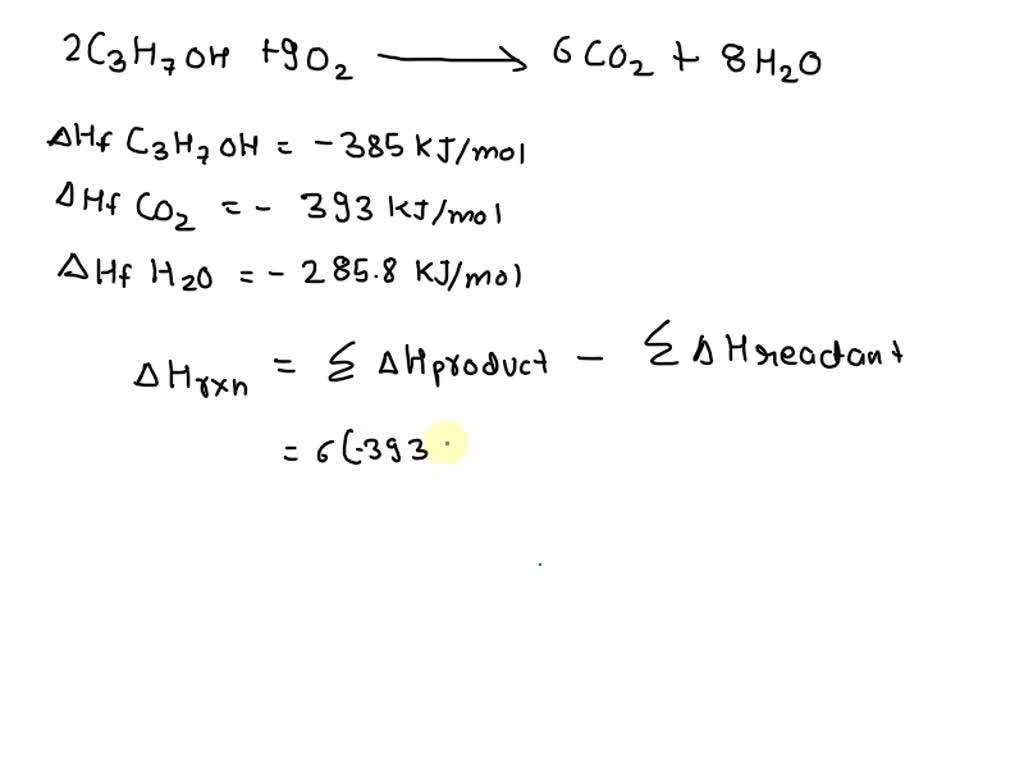 2C3H7OH +9O2 ⟶ 6CO2 + 8H2O
ΔHf C3H7OH = -385 KJ/mol
ΔHf CO2 = - 393 KJ/mol
ΔHf H2O = - 285.8 KJ/mol
ΔHrxn = Σ ΔHproduct - Σ ΔHreactant
= 6(-393